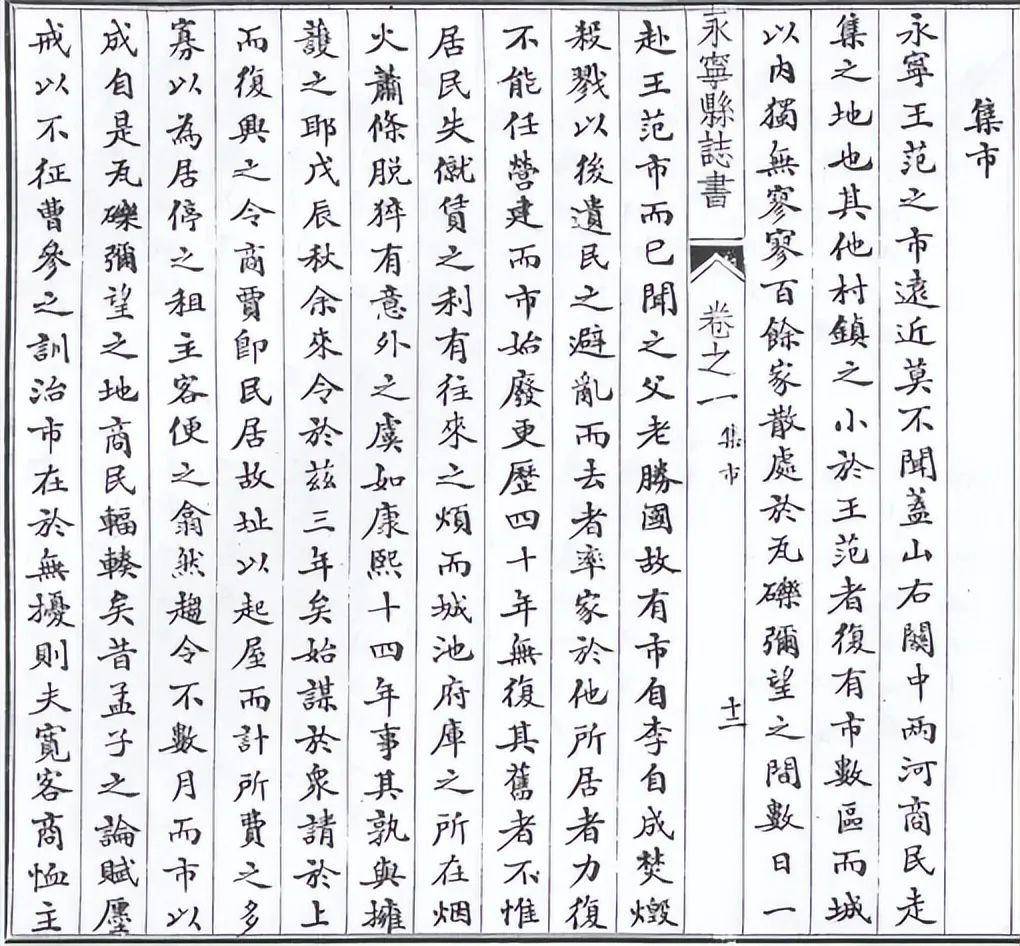 集市
永寧王范之市遠近莫不聞蓋山右關中兩河商民走
集之地也其他村鎮之小於王范者復有市數區而城
以內獨無寥寥百餘家散處於瓦礫彌望之間數日一
永寧縣誌書 卷之一 集市 十二
赴王范市而已聞之父老勝國故有市自李自成焚燬
殺戮以後遺民之避亂而去者率家於他所居者力復
不能任營建而市始廢更歷四十年無復其舊者不惟
居民失僦賃之利有往來之煩而城池府庫之所在烟
火蕭條脱猝有意外之虞如康熙十四年事其孰與擁
護之耶戊辰秋余來令於兹三年矣始謀於衆請於上
而復興之令商賈卽民居故址以起屋而計所費之多
寡以為居停之租主客便之翕然趨令不數月而市以
成自是瓦礫彌望之地商民輻輳矣昔孟子之論賦廛
戒以不征曹參之訓治市在於無擾則夫寬客商恤主